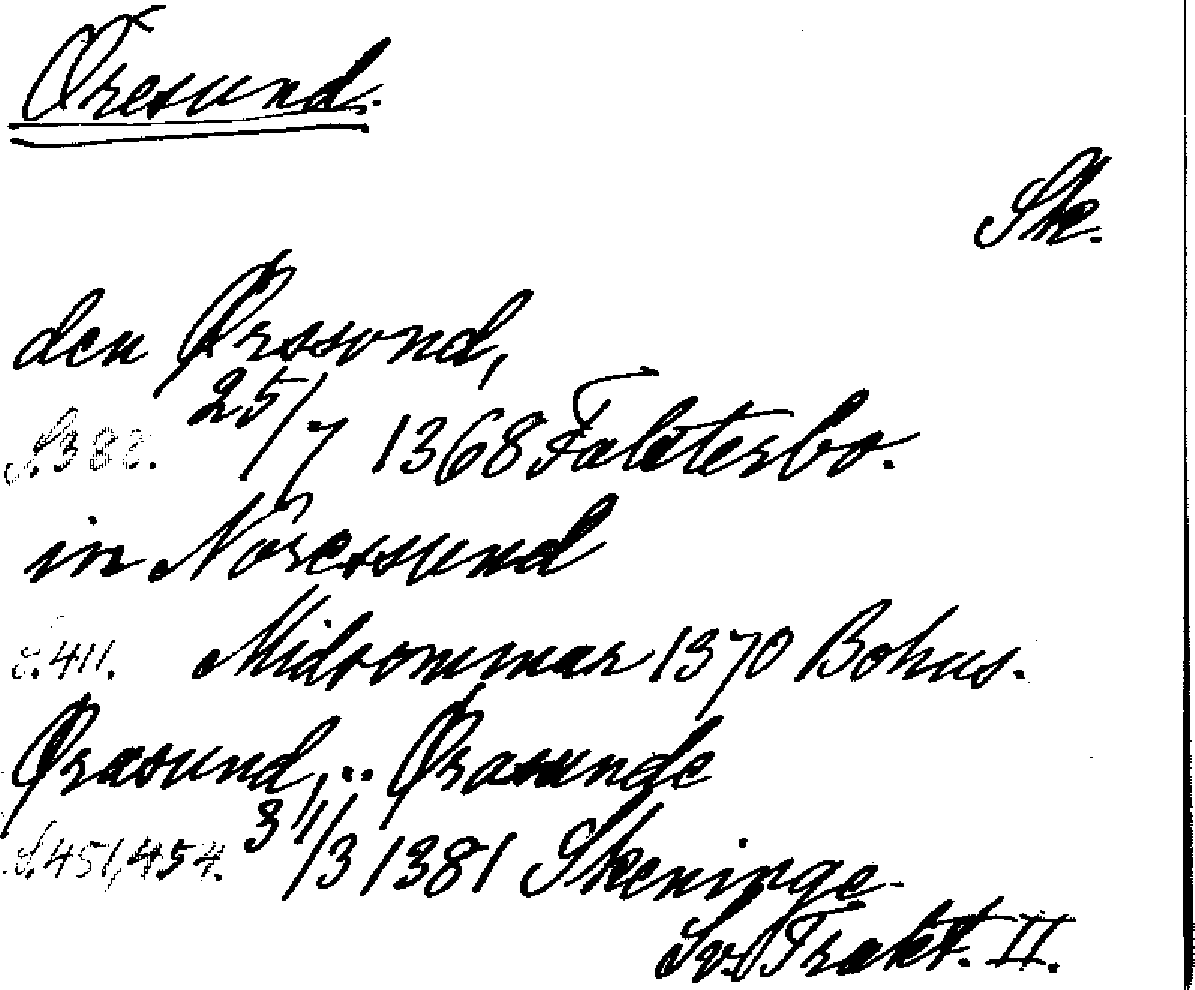 Øresund.
Sk.
den Ørssond,
S.382. 25/7 1368 Falsterbo.
in Nöressund
S.411. Midsommar 1370 Bohus.
Øræsund, .. Ørasunde
S.451,454. 31/3 1381 Skeninge.
Sv. Trakt. II.